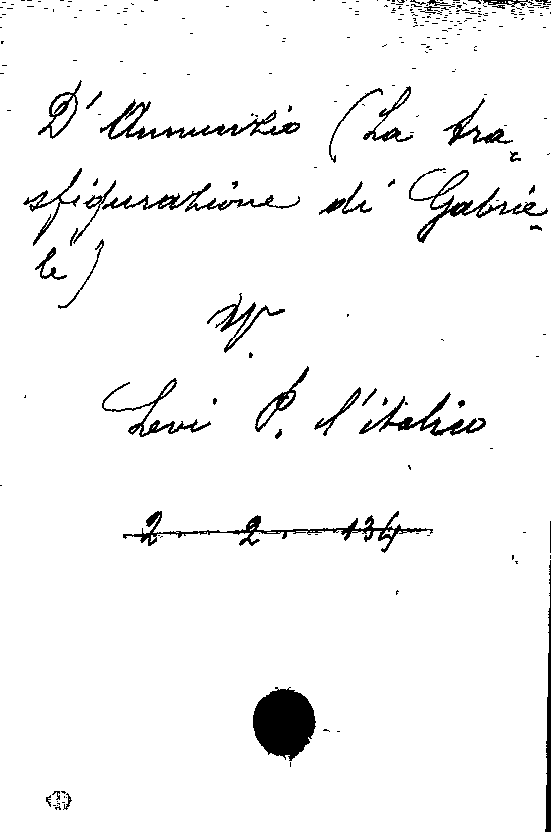 D'Annunzio (La tra-
sfigurazione di Gabrie-
le)
V.
Levi P. l'italico
2. 2. 134